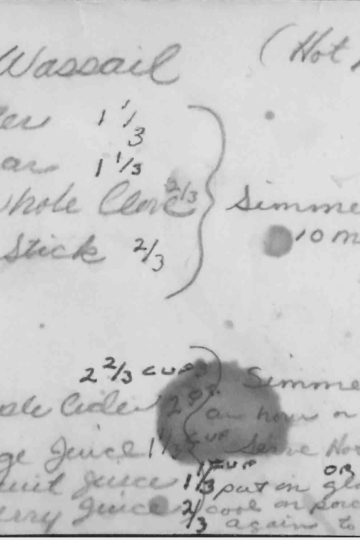 Wassail (Hot
ter 1 1/3
ar 1 1/3
whole Clove 2/3 Simme
Stick 2/3 10 m
2 2/3 cups Simme
ple Cider 2 qt. an hour or
ge Juice 1 1/3 cup Serve Hot
uit Juice 1/3 cup put in gla OR
erry Juice 2/3 cool or pou
again to